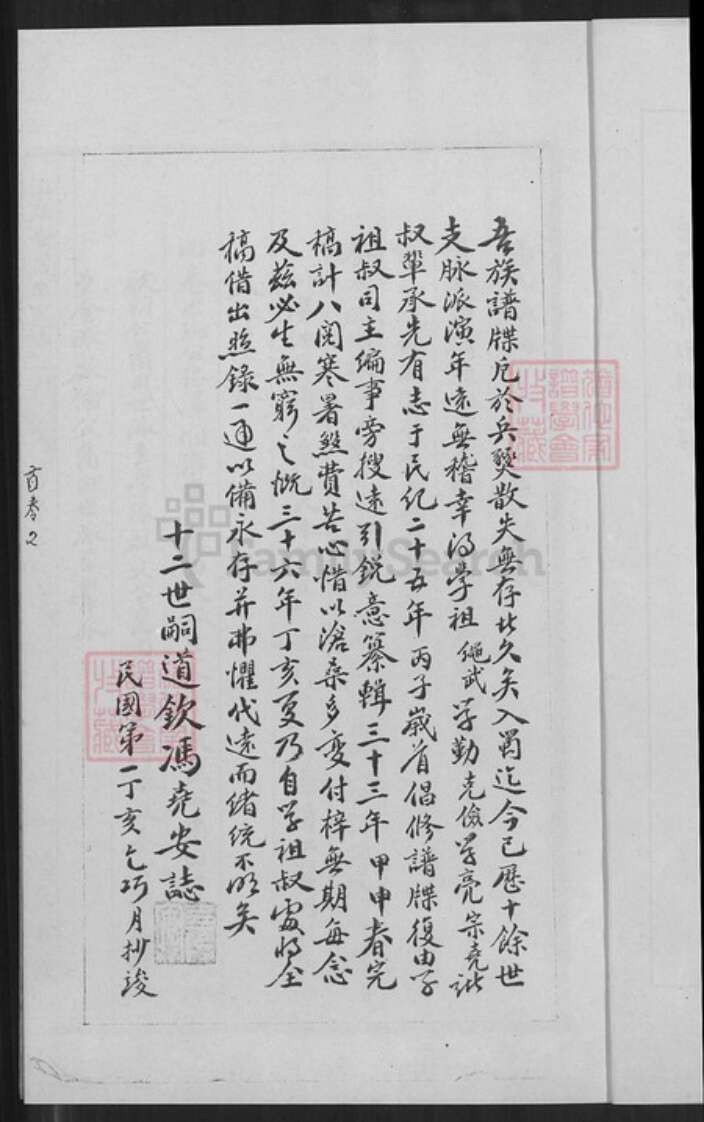 吾族譜牒厄於兵燹散失無存此久矣入蜀迄今已歷十餘世
支脉派演年遠無稽幸得学祖繩武学勤克儉学亮宗堯諸
叔輩承先有志于民纪二十五年丙子嵗首倡修譜牒復由学
祖叔司主编事旁搜遠引銳意纂輯三十三年甲申春完
稿計八閱寒暑煞費苦心惜以滄桑多变付梓無期每念
及兹必生無窮之慨三十六年丁亥夏乃自学祖叔處將全
稿借出照錄一通以備永存并弗懼代遠而緒統不明矣
十二世嗣道欽馮堯安誌
民國第一丁亥乞巧月抄竣
首卷2
FamilySearch
譜學會
收藏